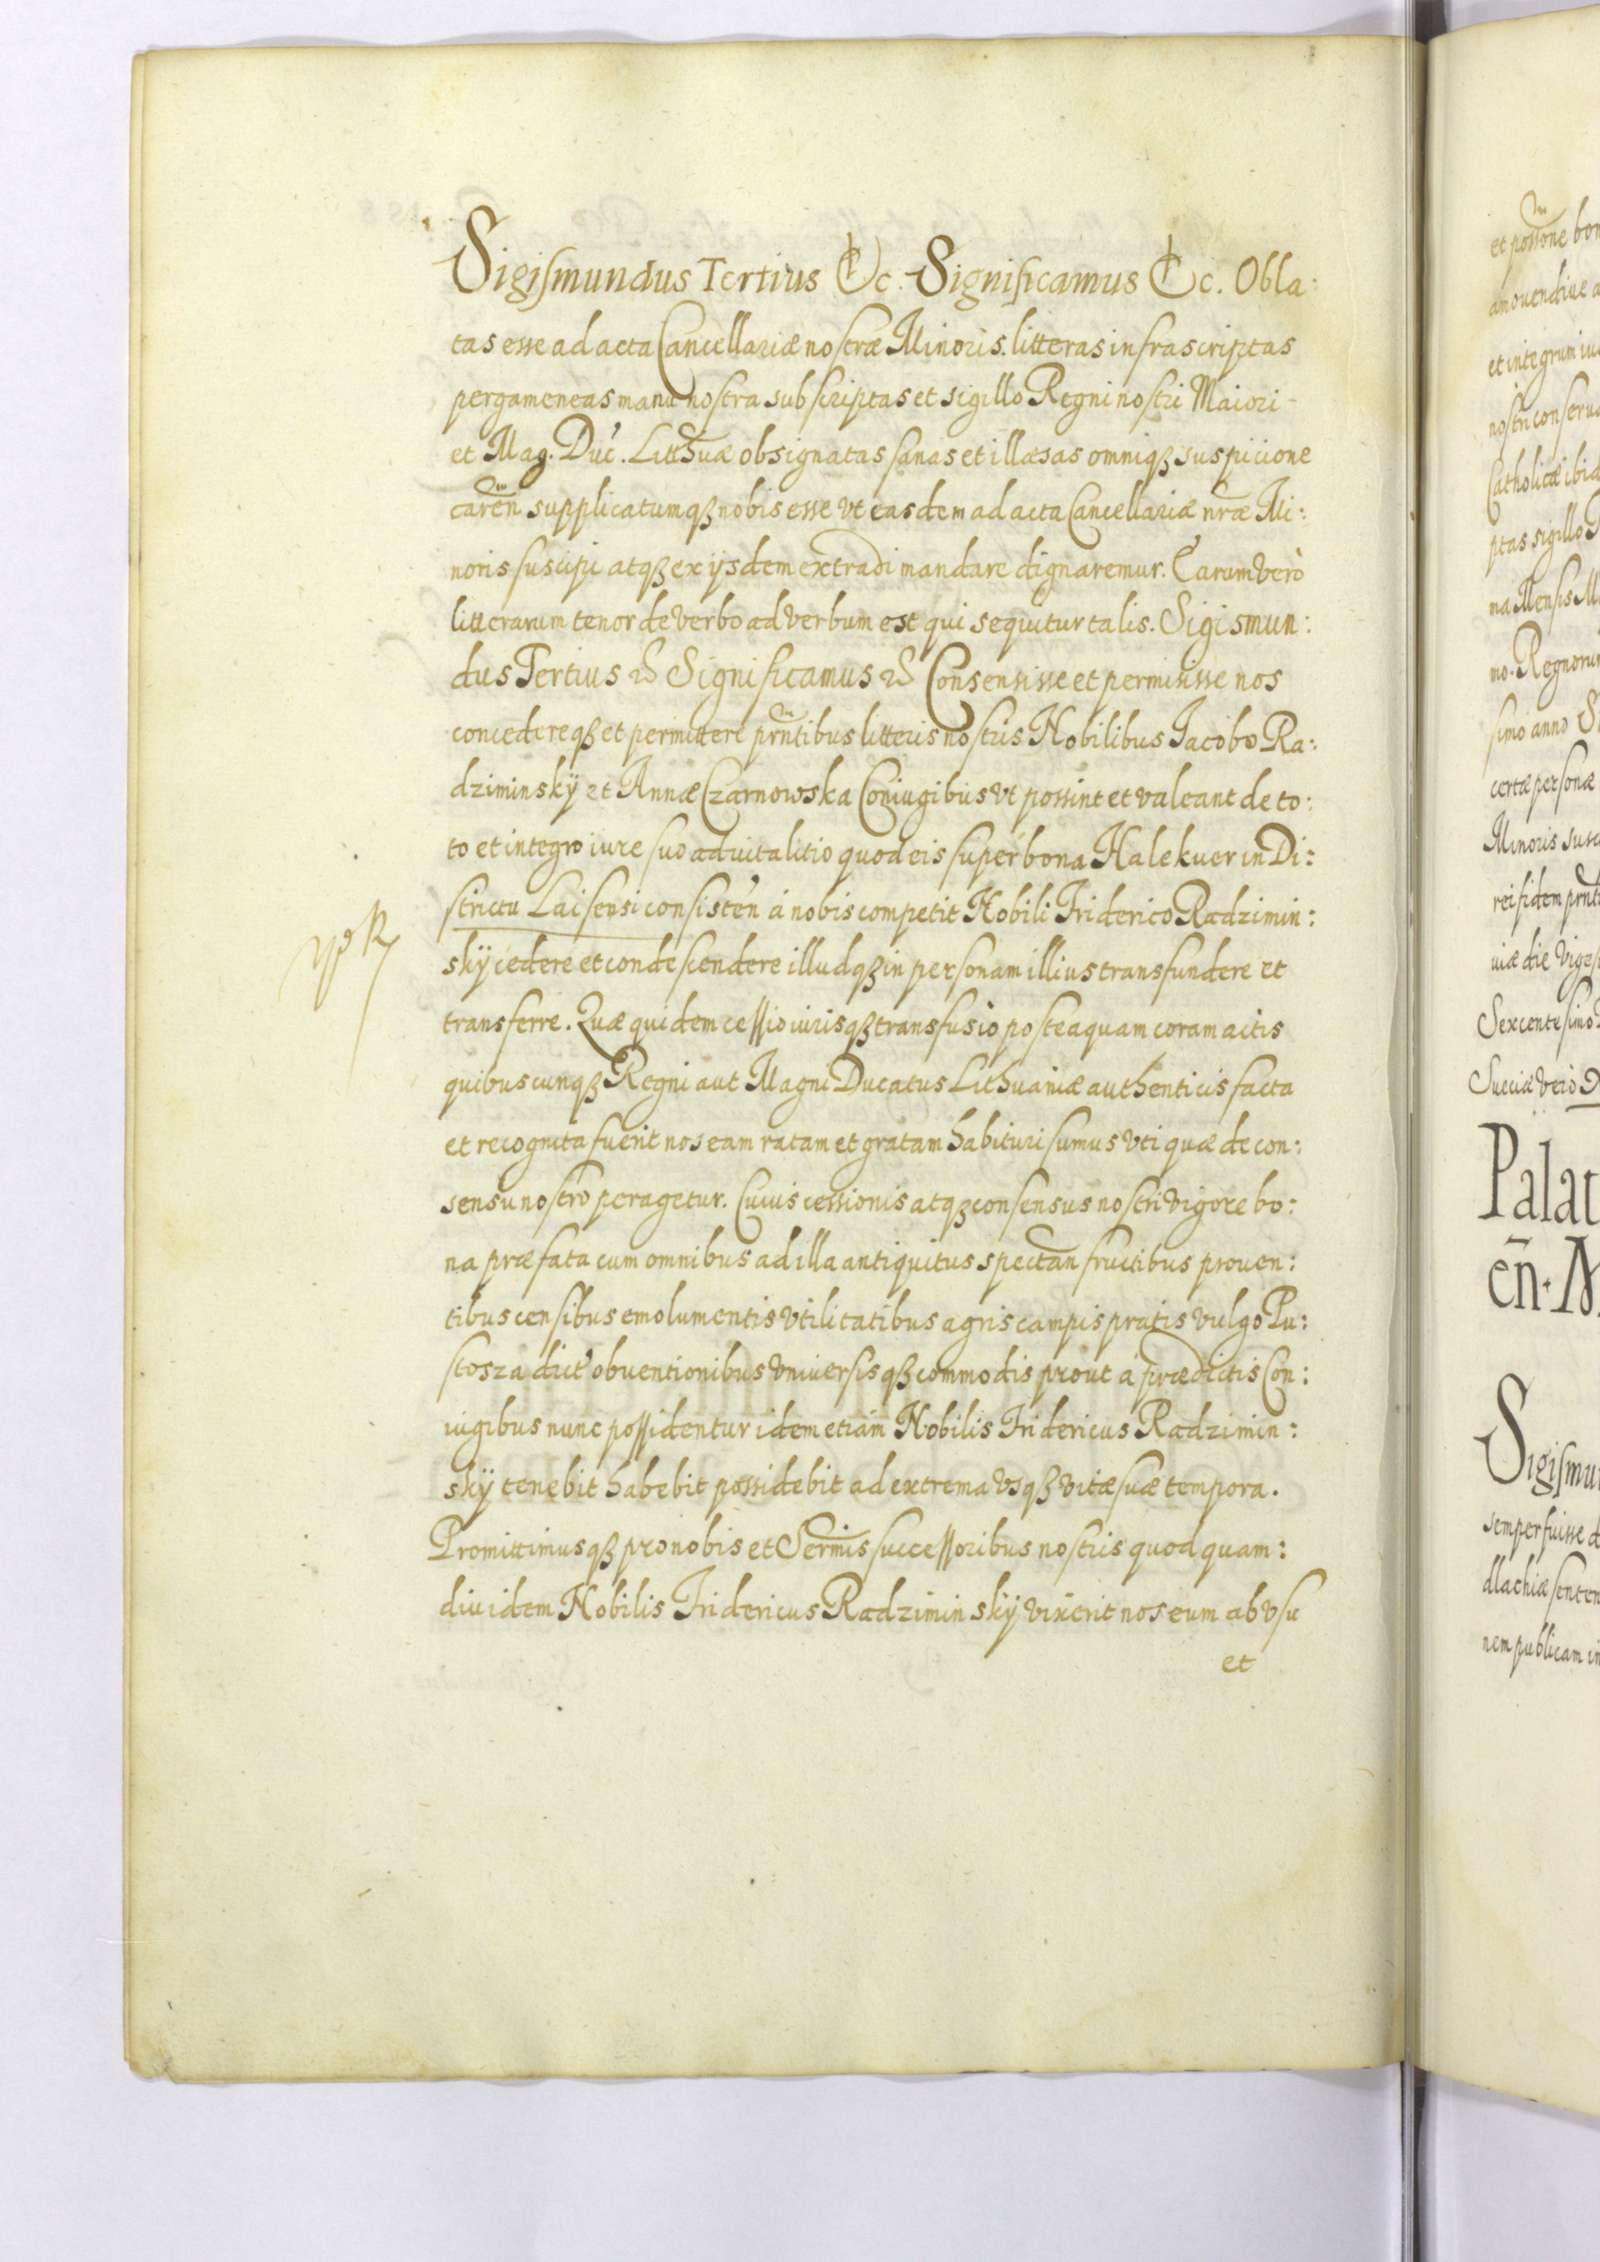 Sigismundus Tertius &c. Significamus &c. Obla:
tas esse ad acta Cancellariæ nostræ Minoris. litteras infrascriptas
pergameneas manu nostra subscriptas et sigillo Regni nostri Maiori
et Mag. Duc. Litthuæ obsignatas sanas et illæsas omniqꝫ suspicione
careñ supplicatumqꝫ nobis esse vt easdem ad acta Cancellariæ nr̄æ Mi:
noris suscipi atqꝫ ex ijsdem extradi mandare dignaremur. Earum verò
litterarum tenor de verbo ad verbum est qui sequitur talis. Sigismun:
dus Tertius &c Significamus &c Consensisse et permisisse nos
concedereqꝫ et permittere prn̄tibus litteris nostris Nobilibus Jacobo Ra:
dziminskÿ et Annæ Czarnowska Coniugibus vt possint et valeant de to:
to et integro iure suo aduitalitio quod eis super bona Halekuer in Di:
strictu Laisensi consisteñ à nobis competit Nobili Friderico Radzimin:
skÿ cedere et condescendere illudqꝫ in personam illius transfundere et
transferre. Quæ quidem cessio iurisqꝫ transfusio posteaquam coram actis
quibuscunqꝫ Regni aut Magni Ducatus Lithuaniæ authenticis facta
et recognita fuerit nos eam ratam et gratam habituri sumus vti quæ de con:
sensu nostro peragetur. Cuius cessionis atqꝫ consensus nostri vigore bo:
na præfata cum omnibus ad illa antiquitus spectañ fructibus prouen:
tibus censibus emolumentis vtilitatibus agris campis pratis vulgo Pu:
stosza dict' obuentionibus vniuersisqꝫ commodis prout a prædictis Con:
iugibus nunc possidentur idem etiam Nobilis Fridericus Radzimin:
skÿ tenebit habebit possidebit ad extrema vsqꝫ vitæ suæ tempora.
Promittimusqꝫ pro nobis et Serm̄is successoribus nostris quod quam:
diu idem Nobilis Fridericus Radziminskÿ vixerit nos eum ab vsu
et
et possōne bon
amouendiue a
et integrum iu
nostri conserua
Catholicæ ibid
ptas sigillo
na Mensis M
mo. Regnorum
simo anno
certæ personæ
Minoris susc
rei fidem prn̄ti
uiæ die Viges
Sexcentesimo
Sueciæ verò
Palat
eñ. M
Sigismu
semper fuisse d
dlachiæ senten
nem publicam in